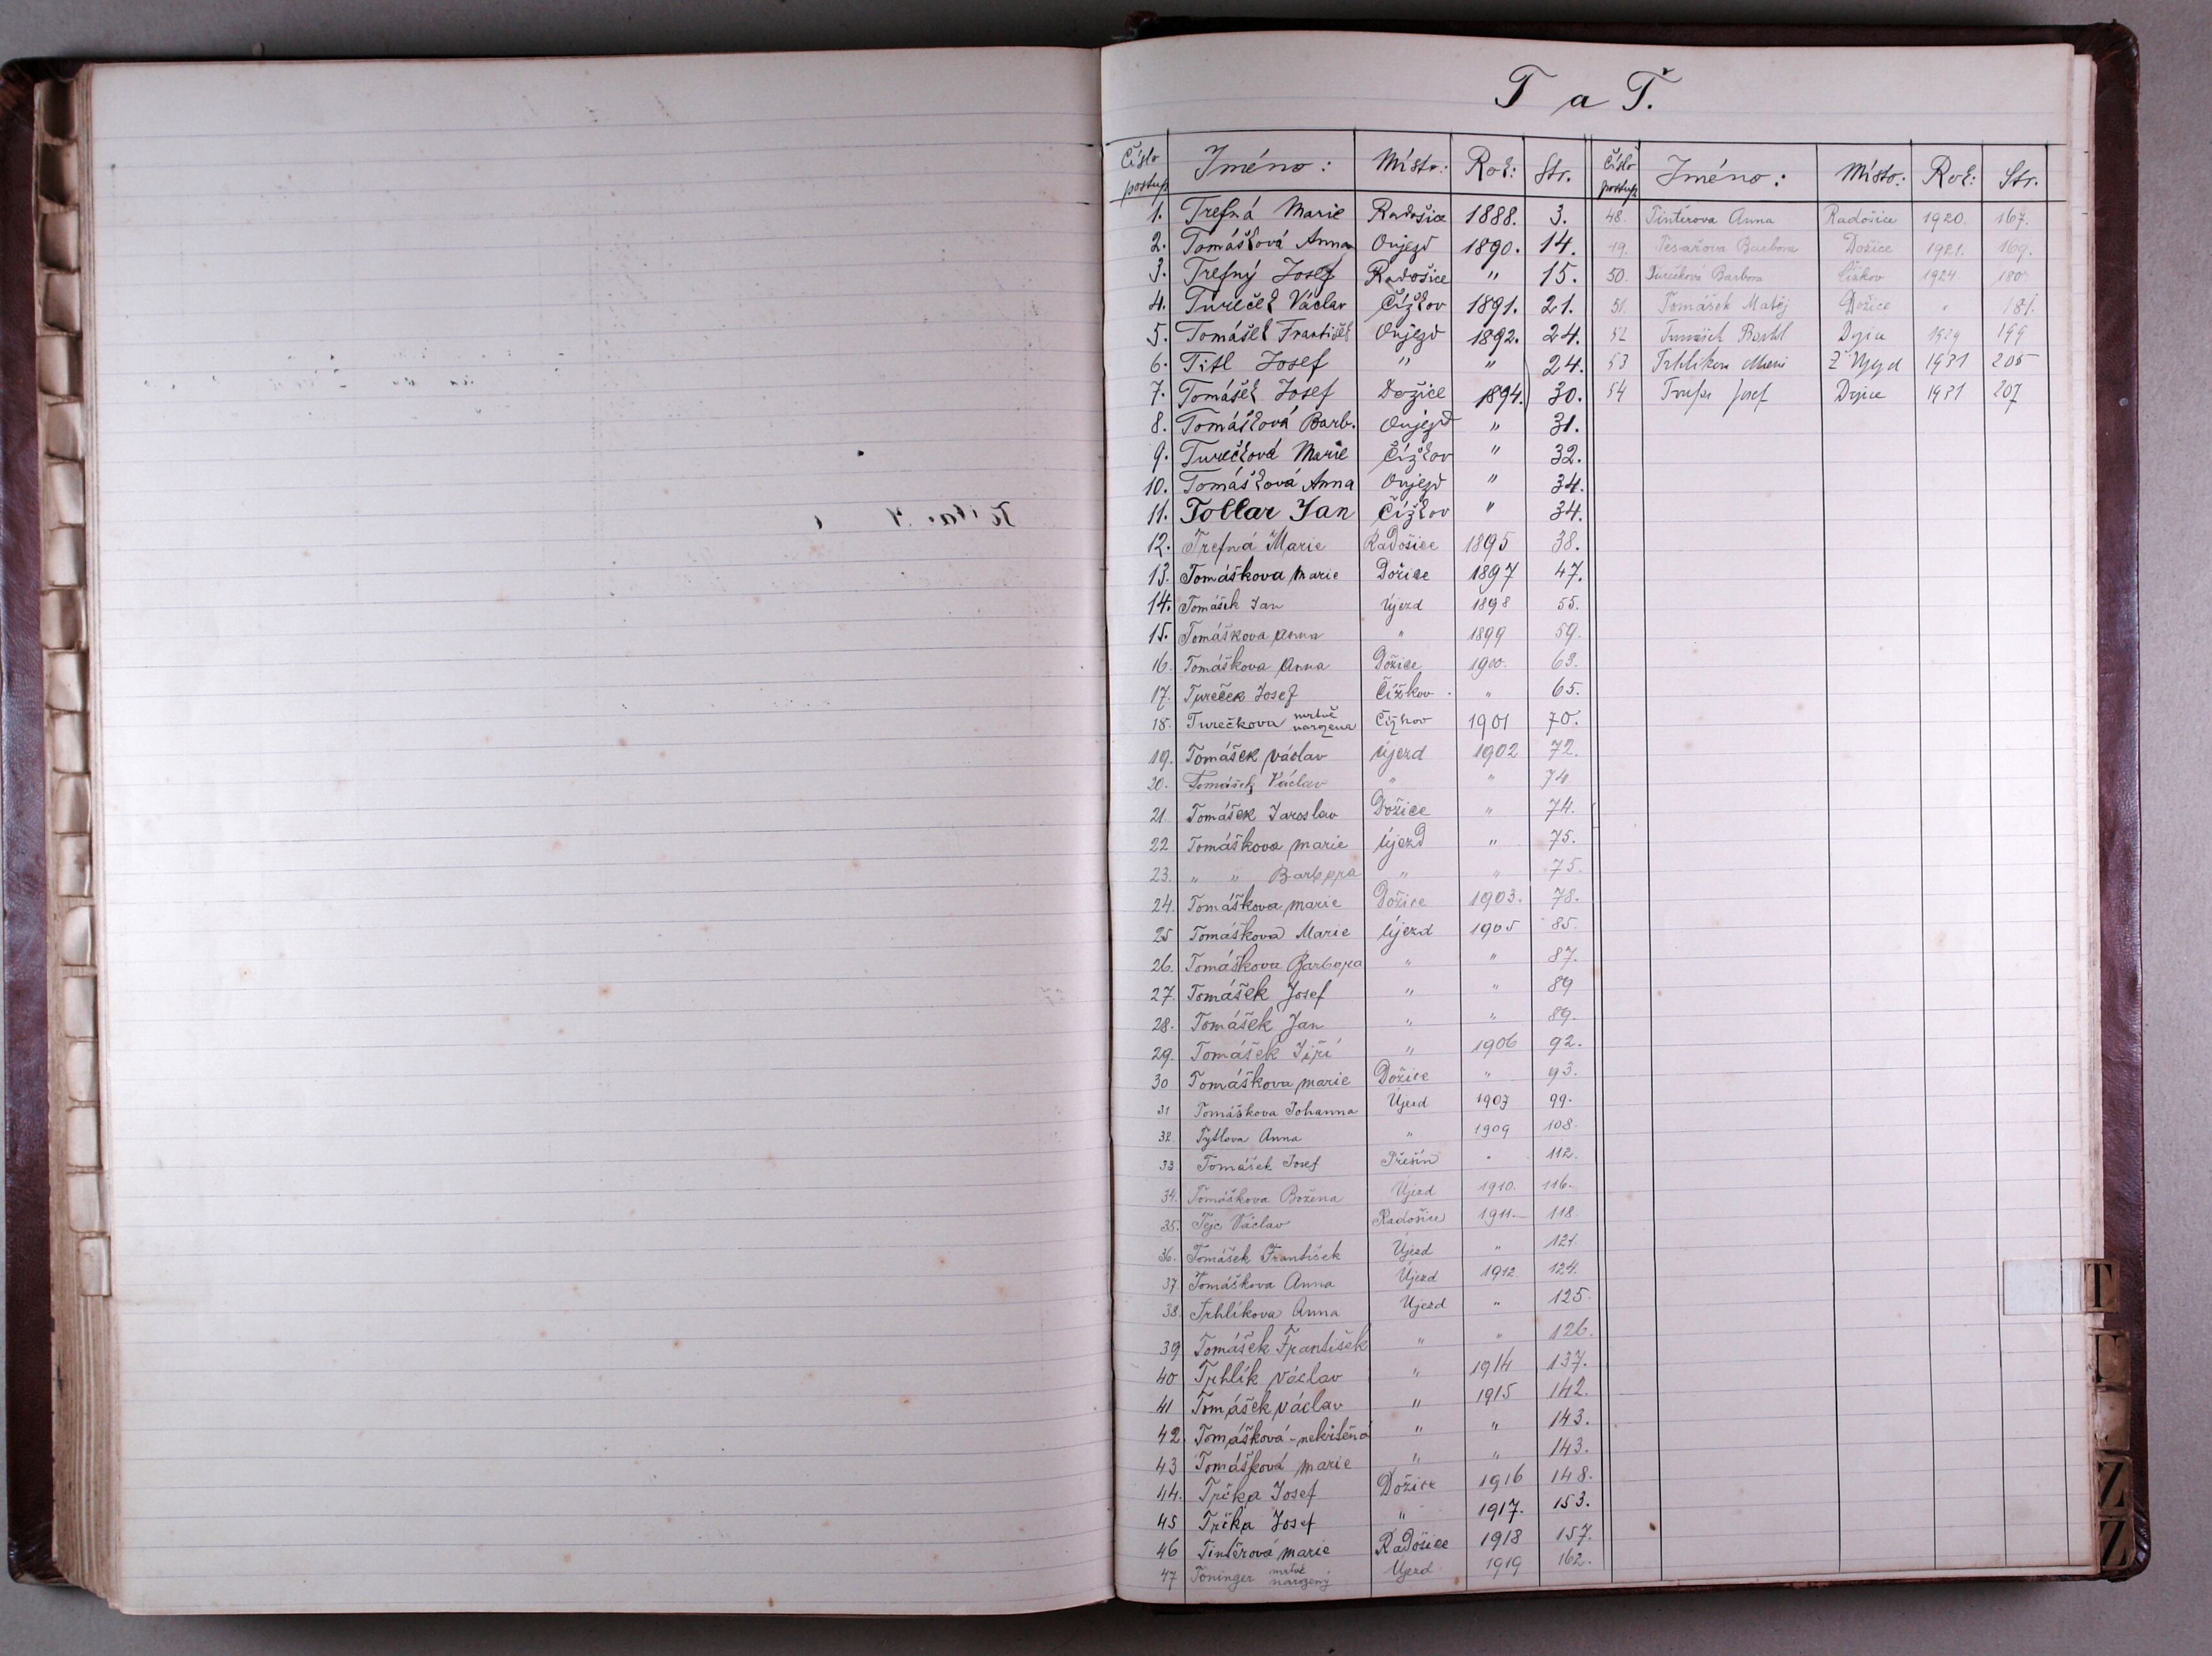 T a Ť.
Číslo postup. Jméno: Místo: Rok: Str.
1. Trefná Marie Radošice 1888. 3.
2. Tomášková Anna Oujezd 1890. 14.
3. Trefný Josef Radošice " 15.
4. Tureček Václav Čížkov 1891. 21.
5. Tomášek František Oujezd 1892. 24.
6. Titl Josef " " 24.
7. Tomášek Josef Dožice 1894. 30.
8. Tomášková Barb. Oujezd " 31.
9. Turečková Marie Čížkov " 32.
10. Tomášková Anna Oujezd " 34.
11. Tollar Jan Čížkov " 34.
12. Trefná Marie Radošice 1895 38.
13. Tomáškova Marie Dožice 1897 47.
14. Tomášek Jan Újezd 1898 55.
15. Tomáškova Anna " 1899 59.
16. Tomáškova Anna Dožice 1900. 63.
17. Tureček Josef Čížkov " 65.
18. Turečkova mrtvě narozena Čížkov 1901 70.
19. Tomášek Václav Újezd 1902 72.
20. Tomášek Václav " " 74
21. Tomášek Jaroslav Dožice " 74.
22 Tomáškova Marie Újezd " 75.
23. " " Barbora " " 75.
24. Tomáškova Marie Dožice 1903. 78.
25 Tomáškova Marie Újezd 1905 85.
26. Tomáškova Barbora " " 87.
27. Tomášek Josef " " 89
28. Tomášek Jan " " 89.
29. Tomášek Jiří " 1906 92.
30 Tomáškova Marie Dožice " 93.
31 Tomáškova Johanna Újezd 1907 99.
32. Tytlova Anna " 1909 108.
33. Tomášek Josef Přešín " 112.
34. Tomáškova Božena Újezd 1910. 116.
35. Tejc Václav Radošice 1911 118.
36. Tomášek František Újezd " 121
37 Tomáškova Anna Újezd 1912 124.
38. Trhlíkova Anna Újezd " 125.
39 Tomášek František " " 126.
40 Trhlík Václav " 1914 137.
41 Tomášek Václav " 1915 142.
42. Tomášková - nekřtěná " " 143.
43 Tomášková Marie " " 143.
44. Trčka Josef Dožice 1916 148.
45 Trčka Josef " 1917. 153.
46 Tintěrová Marie Radošice 1918 157.
47 Toninger mrtvě narozený Újezd 1919 162.
Číslo postup. Jméno: Místo: Rok: Str.
48. Tintěrova Anna Radošice 1920. 167.
49. Tesařova Barbora Dožice 1921. 169.
50. Turečková Barbora Čížkov 1924 180
51. Tomášek Matěj Dožice " 181.
52 Tomášek Dožice 1929 199
53 Trhlíkova Marie Ž Újezd 1931 205
54 Josef Dožice 1931 207
T
T
Z
Z